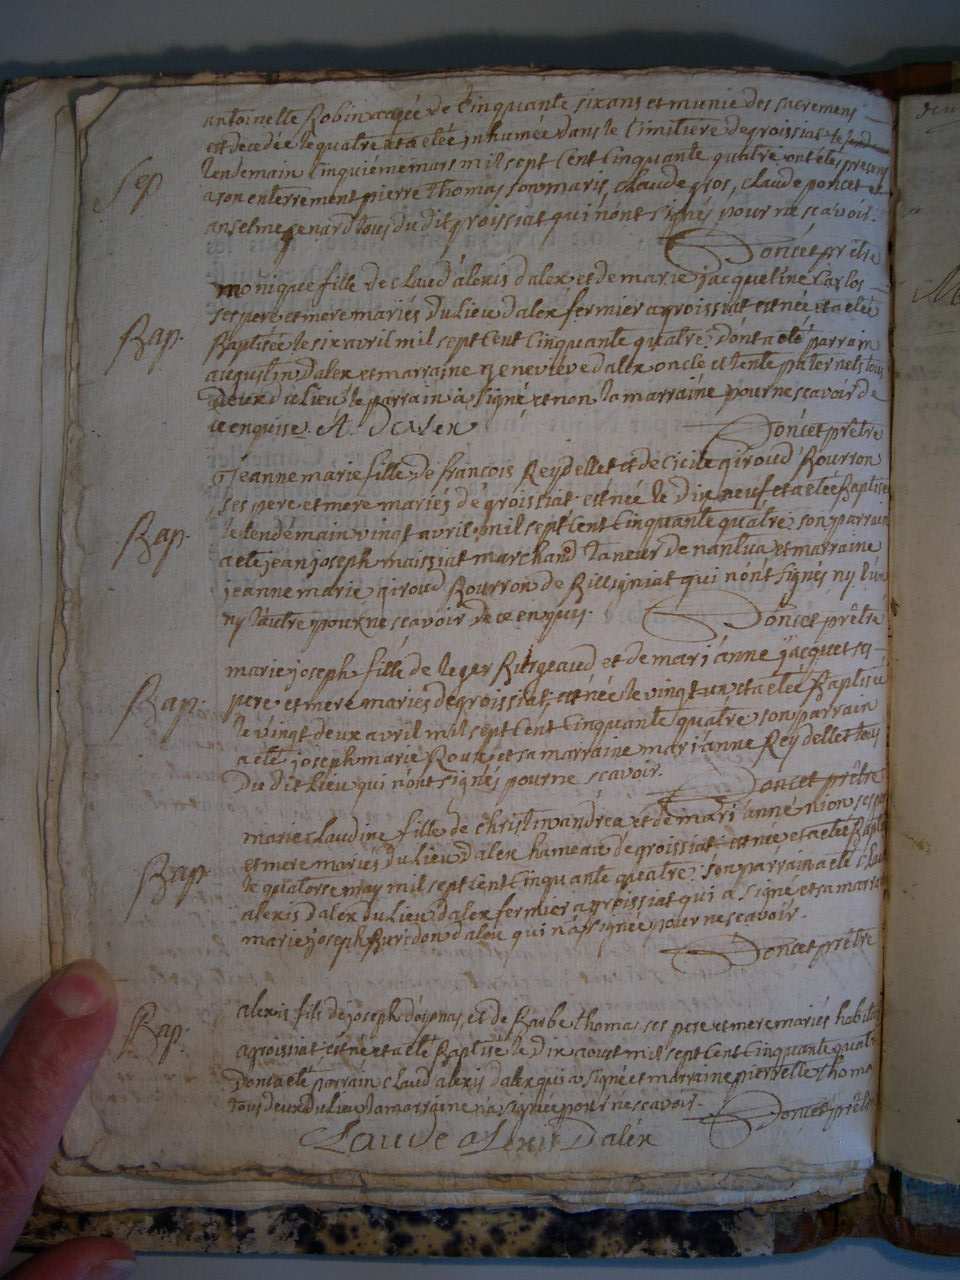 antoinelle Robin agée de Cinquante six ans et munie des sacremens
est decedée le quatre et a etée inhumée dans le Cimitiere de groissiat le
Sep
lendemain Cinquiéme mars mil sept Cent Cinquante quatre ont etés presens
a son enterrement pierre Thomas son maris, Claude gros, Claude poncet et
anselme tous du dit groissiat qui n'ont signés pour ne scavoir.
Doncet prêtre
monique fille de Claud alexis dalex et de marie jacqueline Carlos
ses pere et mere mariés du lieu dalex fermier a groissiat est née et a eté
Bap.
Baptisée le six avril mil sept Cent Cinquante quatre, dont a eté parrain
augustin dalex et marraine geneviéve dalex oncle et tente paternels tous
deux du lieu le parrain à signé et non la marraine pour ne scavoir de
ce enquise. A. Dalex
Doncet prêtre
Jeanne marie fille de francois Reydellet et de Cicile giroud Bourron
ses pere et mere mariés de groissiat est née le dix neuf et a etée Baptisée
Bap.
le lendemain vingt avril mil sept Cent Cinquante quatre, son parrain
a eté jean joseph maissiat marchand taneur de nantua et marraine
jeanne marie giroud Bourron de Belligniat qui n'ont signés ny l'un
ny l'autre pour ne scavoir de ce enquis.
Doncet prêtre
marie joseph fille de leger Burgeaud et de mari anne jacquet ses
Bap.
pere et mere mariés de groissiat, est née le vingt un et a etée Baptisée
le vingt deux avril mil sept Cent Cinquante quatre son parrain
a eté joseph marie Roux et sa marraine mari anne Reydellet tous
du dit lieu qui n'ont signés pour ne scavoir.
Doncet prêtre
marie Claudine fille de Christin andréa et de mari anne nion ses pere
et mere mariés du lieu dalex hameau de groissiat est née et a etée Baptisée
Bap.
le quatorse may mil sept Cent Cinquante quatre, son parrain a eté Claud
alexis dalex du lieu dalex fermier a groissiat qui a signé et sa marraine
marie joseph Buridon qui n'a signée pour ne scavoir.
Doncet prêtre
alexis fils de joseph doyonas, et de Barbe thomas ses pere et mere mariés
Bap.
a groissiat est né et a eté Baptisé le dix aout mil sept Cent Cinquante quatre
dont a eté parrain Claud alexis dalex qui a signé et marraine pierrette thomas
tous deux du lieu la marraine n'a signée pour ne scavoir.
Doncet prêtre
Claude alexis Dalex